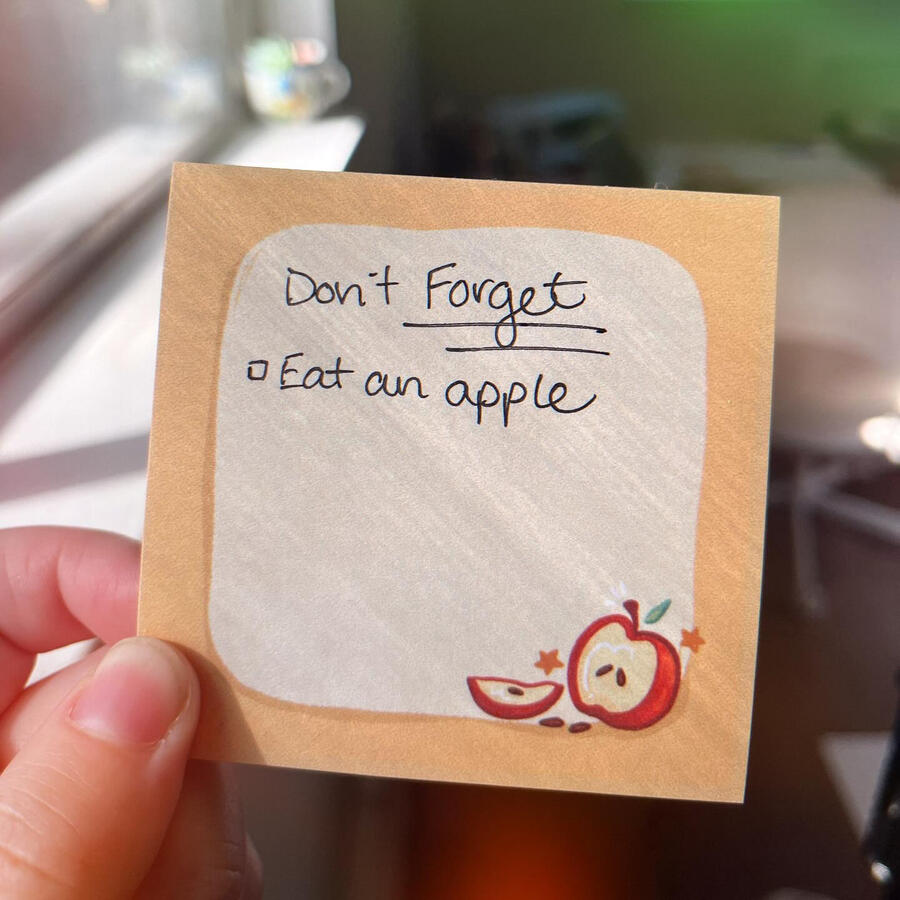 Don't Forget
□ Eat an apple